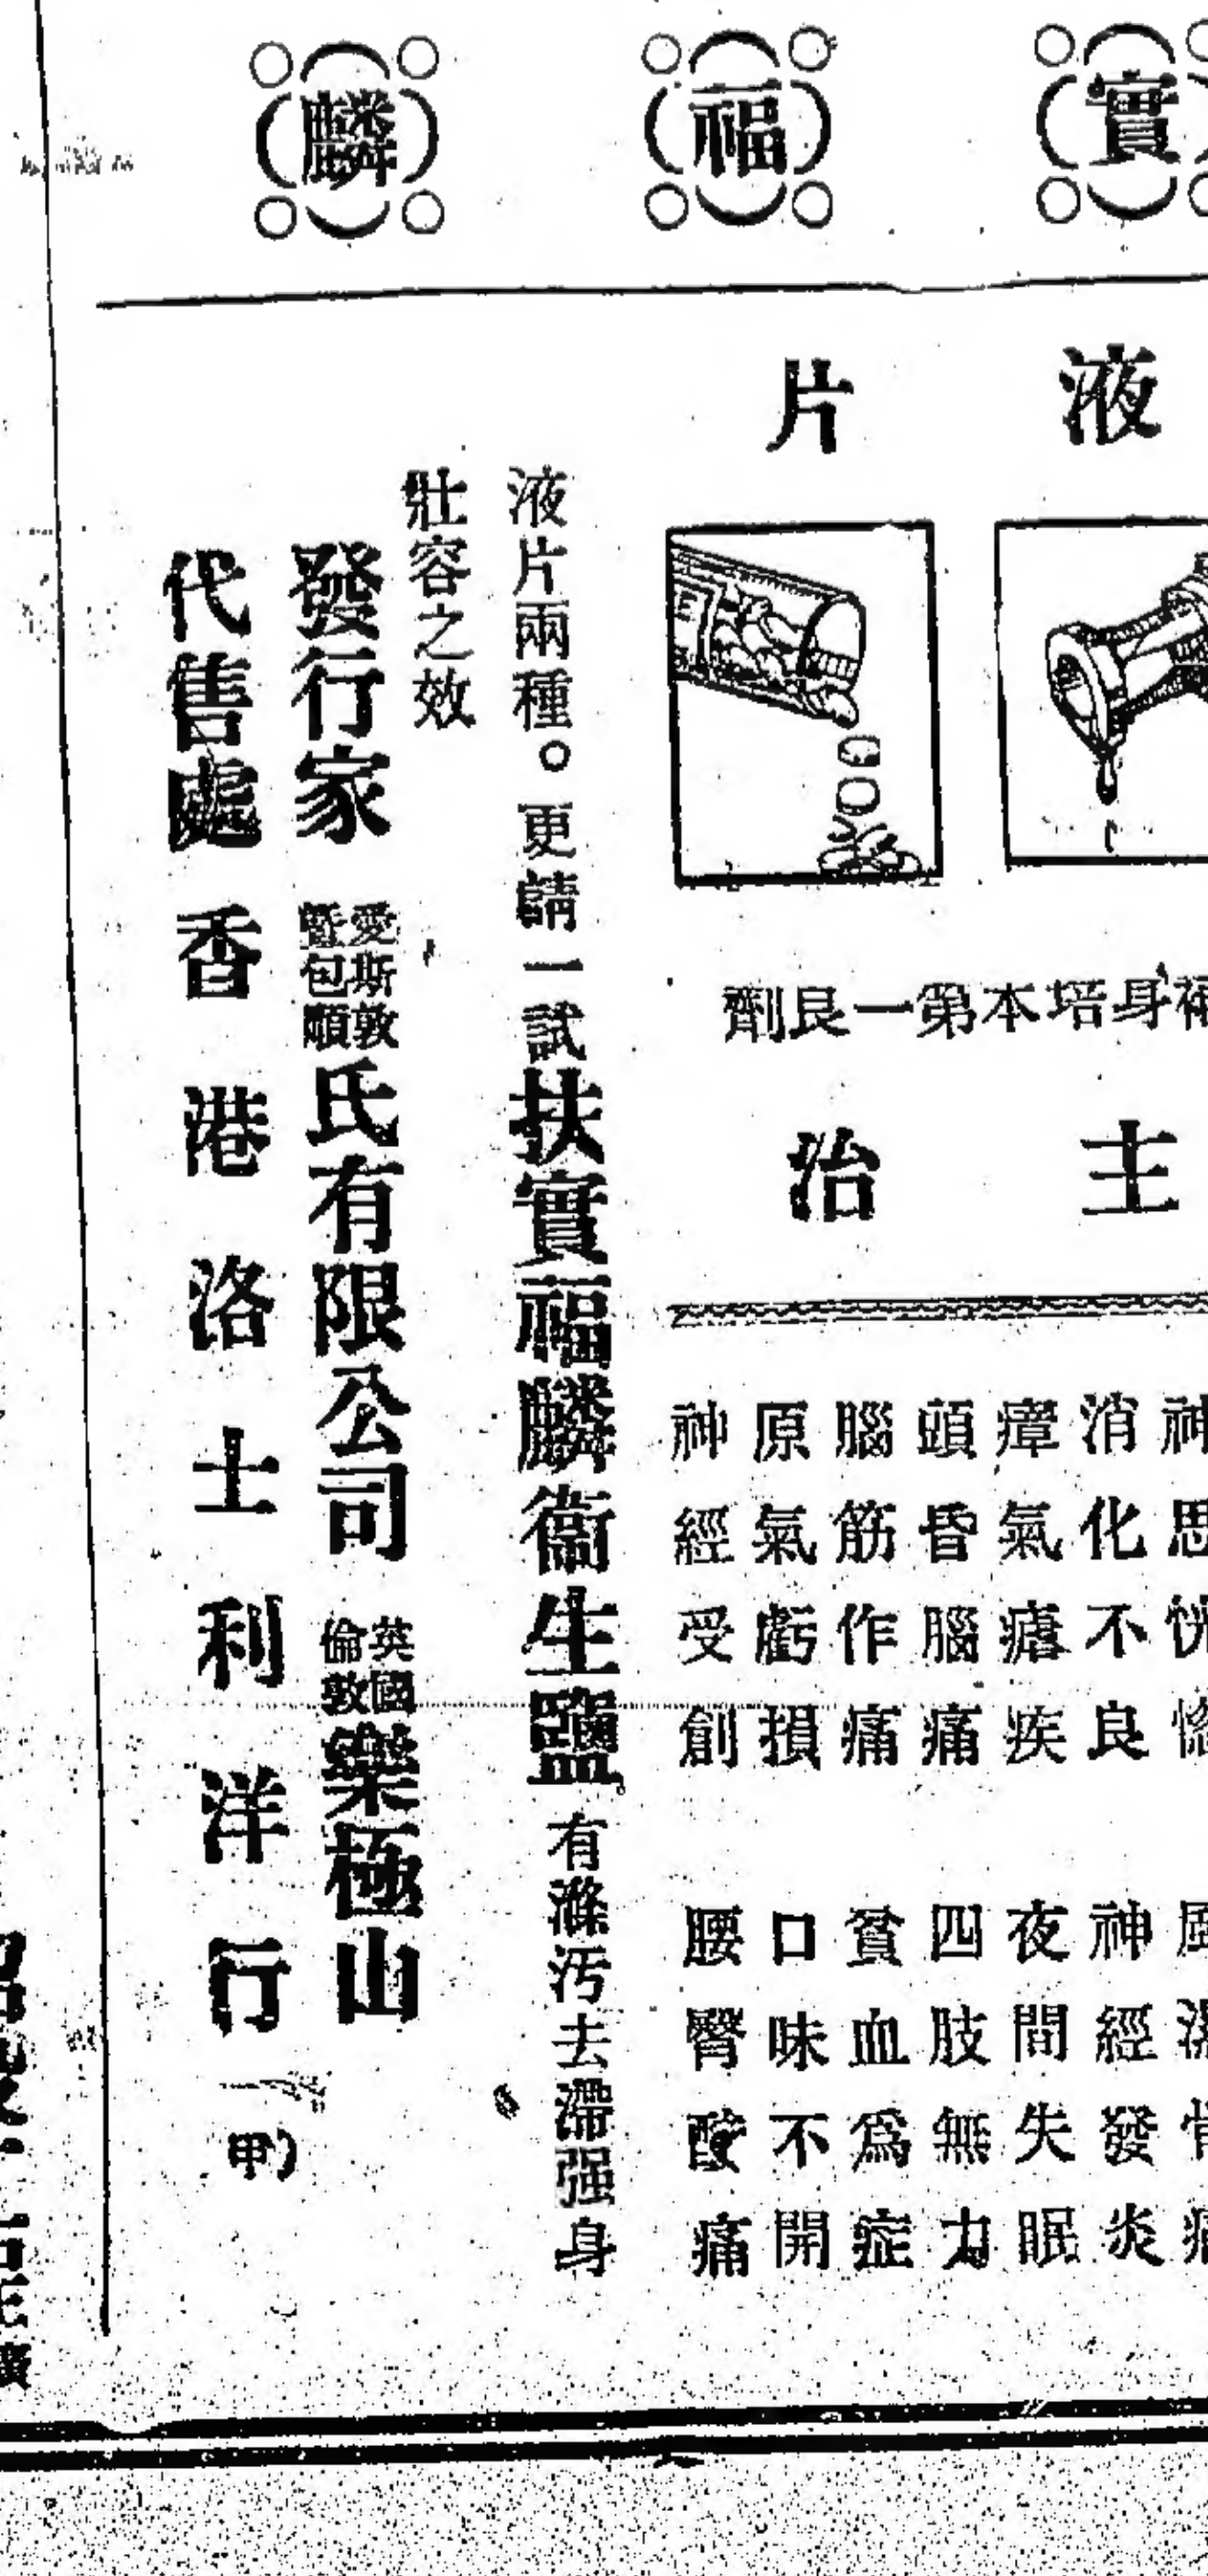 實福麟
液片
身培本第一良劑
主治
消化不良
瘴氣瘧疾
頭昏腦痛
腦筋作痛
原氣虧損
神經受創
神經發炎
夜間失眠
四肢無力
貧血為症
口味不開
腰腎酸痛
液片兩種。更請一試扶實福麟衞生鹽。有滌汚去滯强身
壯容之效
發行家 愛斯敦暨包順氏有限公司 英國倫敦樂極山
代售處 香港洛士利洋行
(甲)